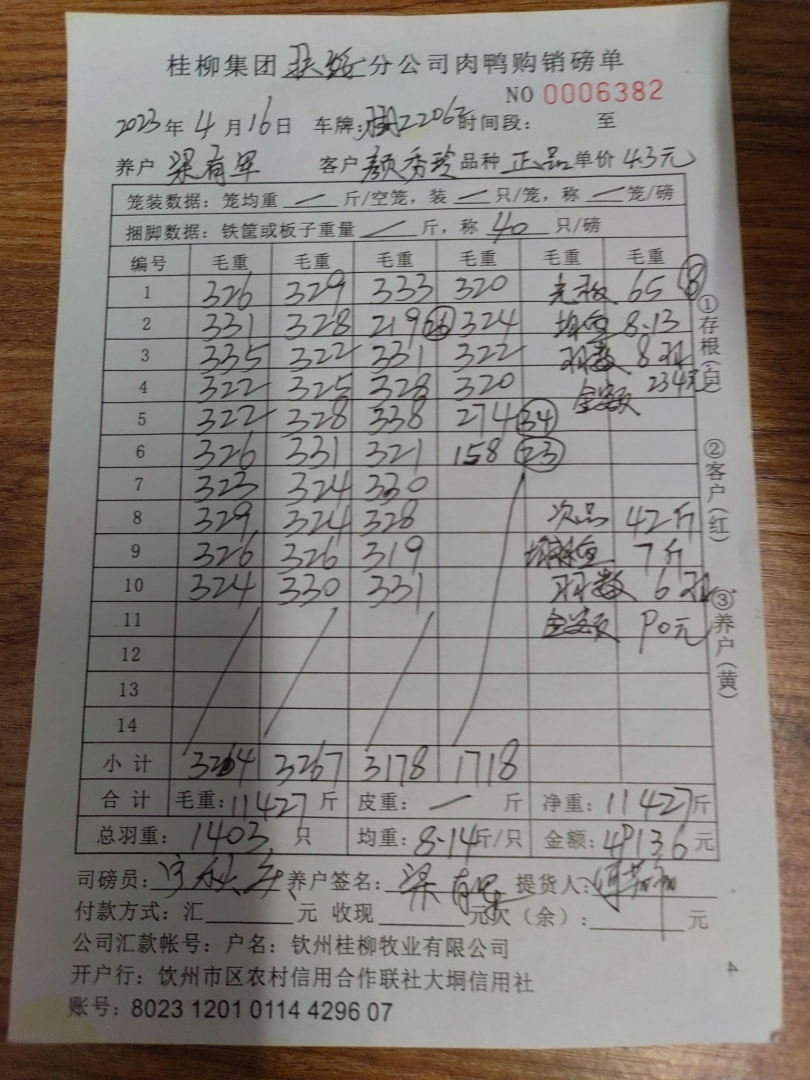 桂柳集团扶绥分公司肉鸭购销磅单
NO 0006382
2023年4月16日 车牌: Z2206 时间段: 至
养户 梁有军 客户 颜秀玲 品种 正品 单价 4.3元
笼装数据: 笼均重 一 斤/空笼, 装 一 只/笼, 称 一 笼/磅
捆脚数据: 铁筐或板子重量 一 斤, 称 40 只/磅
编号 毛重 毛重 毛重 毛重 毛重 毛重
1 326 329 333 320 65 8
2 331 328 219 324 均重 8.13
3 335 322 331 322 羽数 8羽
4 322 325 328 320 金额 234元
5 322 328 338 274 34
6 326 331 321 158 23
7 323 324 330
8 329 324 328 次品 42斤
9 326 326 319 均重 7斤
10 324 330 331 羽数 6羽
11 金额 90元
12
13
14
小计 3264 3267 3178 1718
合计 毛重: 11427 斤 皮重: 一 斤 净重: 11427 斤
总羽重: 1403 只 均重: 8.14 斤/只 金额: 49136 元
司磅员: 养户签名: 梁有军 提货人:
付款方式: 汇 元 收现 元欠(余): 元
公司汇款帐号: 户名: 钦州桂柳牧业有限公司
开户行: 钦州市区农村信用合作联社大垌信用社
账号: 8023 1201 0114 4296 07
①存根(白)
②客户(红)
③养户(黄)